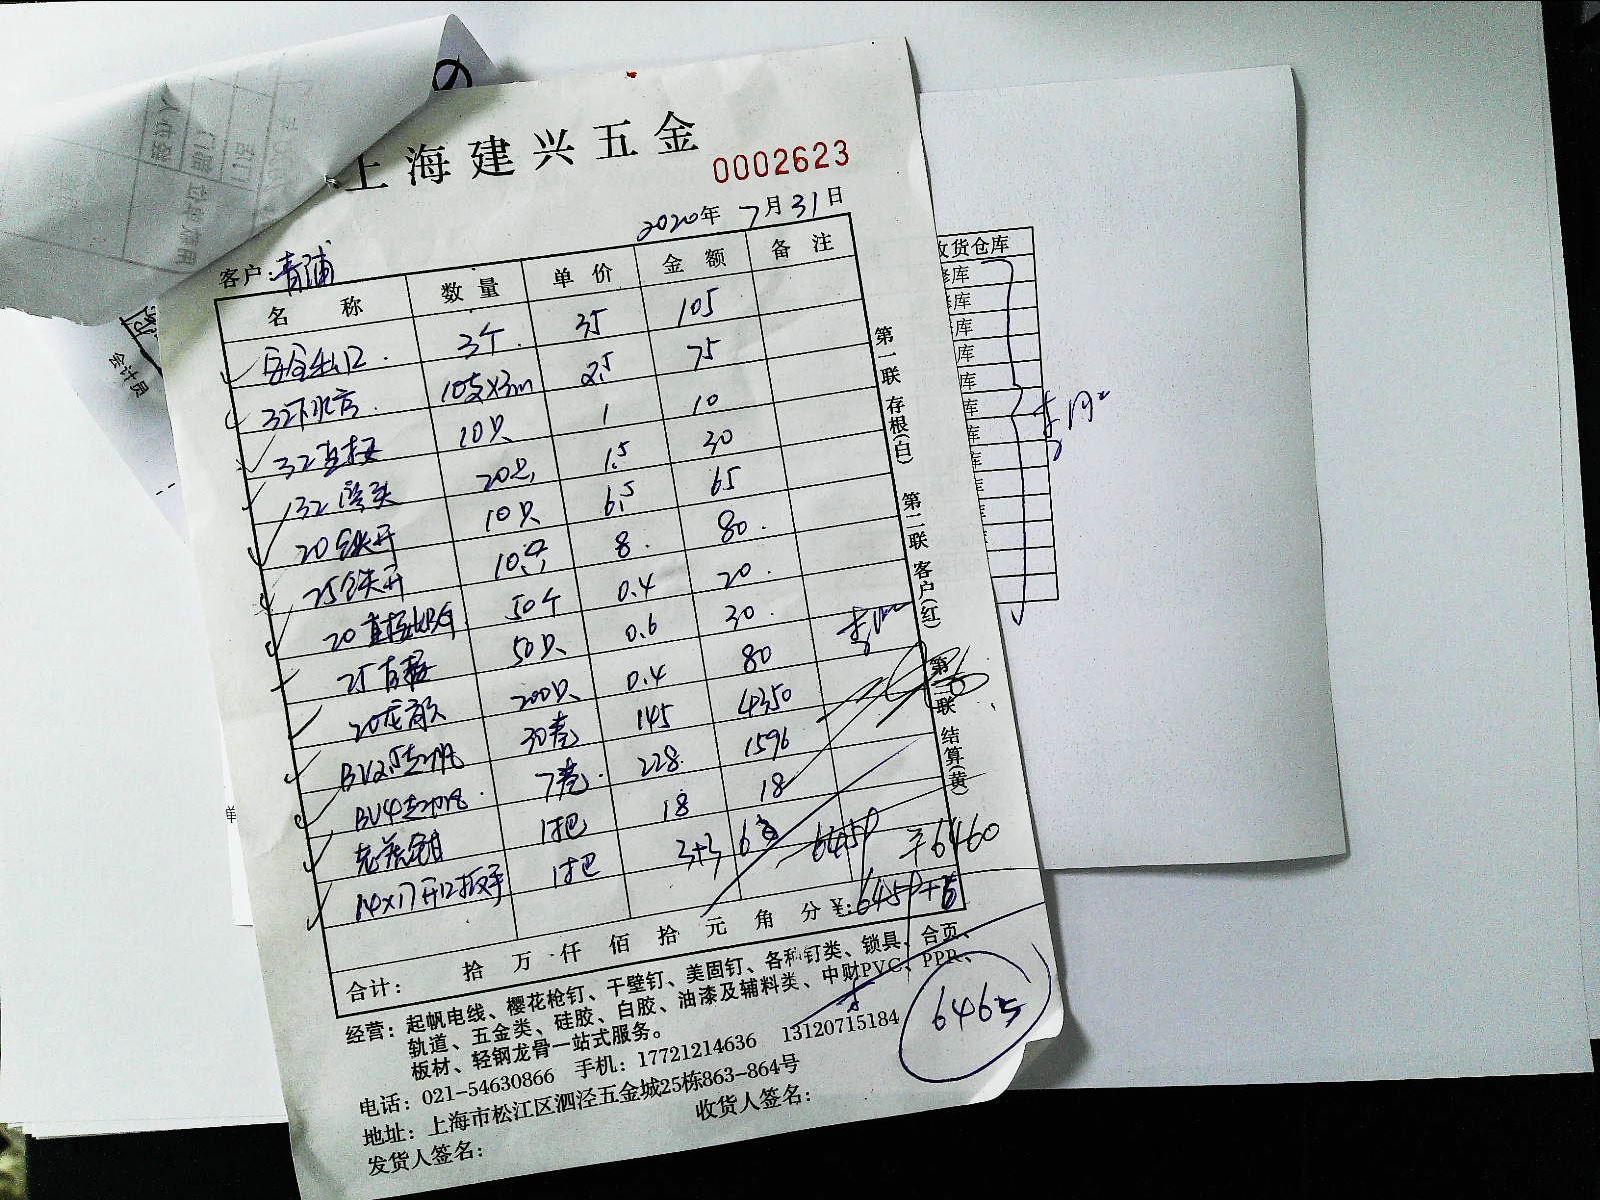 上海建兴五金
0002623
2020年 7月31日
客户: 青浦
名 称 数 量 单 价 金 额 备 注
3个. 35 105
32下水管. 10支×3m 2.5 75
32直接 10只 1 10
32弯头 20只 1.5 30
20铁开 10只 6.5 65
25铁开 10只 8. 80.
20直接 50个 0.4 20.
25直接 50只 0.6 30.
20 200只 0.4 80
BV2.5起帆 30卷 145 4350
BV4起帆. 7卷. 228 1596
1把 18 18
14×17开口扳手 1把 3+3 6
6459 ¥6460
合计: 拾 万 仟 佰 拾 元 角 分 ¥: 6459+6
6465
第一联 存根(白) 第二联 客户(红) 第三联 结算(黄)
经营: 起帆电线、樱花枪钉、干壁钉、美固钉、各种钉类、锁具、合页、
轨道、五金类、硅胶、白胶、油漆及辅料类、中财PVC、PPR、
板材、轻钢龙骨一站式服务。
电话: 021-54630866 手机: 17721214636 13120715184
地址: 上海市松江区泗泾五金城25栋863-864号
发货人签名: 收货人签名:
收货仓库
会计员